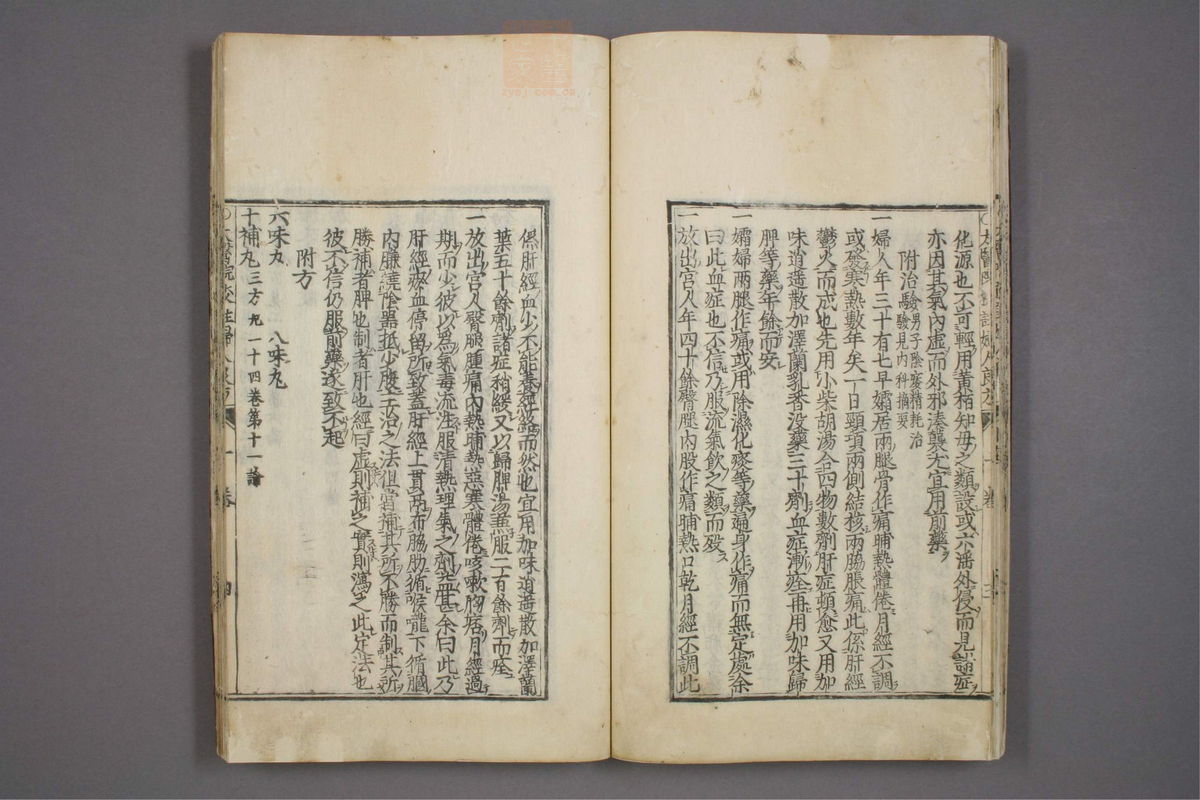 他源也不可輕用黃栢知母之類設或六滛外侵而見諸症
亦因其氣內虛而外邪湊襲尤宜用前藥
附治驗男子陰痿精耗治驗見內科摘要
一婦人年三十有七早孀居兩腿骨作痛晡熱體倦月經不調
或發寒熱數年矣一日頸項兩側結核兩脇脹痛此係肝經
鬱火而成也先用小柴胡湯合四物數劑肝症頓愈又用加
味逍遥散加澤蘭乳香没藥三十劑血症漸痊再用加味歸
脾等藥年餘而安
一孀婦兩腿作痛或用除濕化痰等藥遍身作痛而無定處余
曰此血症也不信乃服流氣飲之類而殁
一放出宮人年四十餘臀腿內股作痛晡熱口乾月經不調此
係肝經血少不能養經絡而然也宜用加味逍遥散加澤蘭
葉五十餘劑諸症稍緩又以歸脾湯兼服二百餘劑而痊
一放出宮人臀腿腫痛內熱晡熱惡寒體倦咳嗽胸痞月經過
期而少彼以為氣毒流注服清熱理氣之劑益甚余曰此乃
肝經瘀血停留所致蓋肝經上貫膈布脇肋循喉嚨下循膕
內臁遶陰器抵少腹主治之法但當補其所不勝而制其所
勝補者脾也制者肝也經曰虛則補之實則瀉之此定法也
彼不信仍服前藥遂致不起
附方
六味丸 八味丸
十補丸三方九一十四卷第十一論
○太醫院校註婦人良方
一卷
四